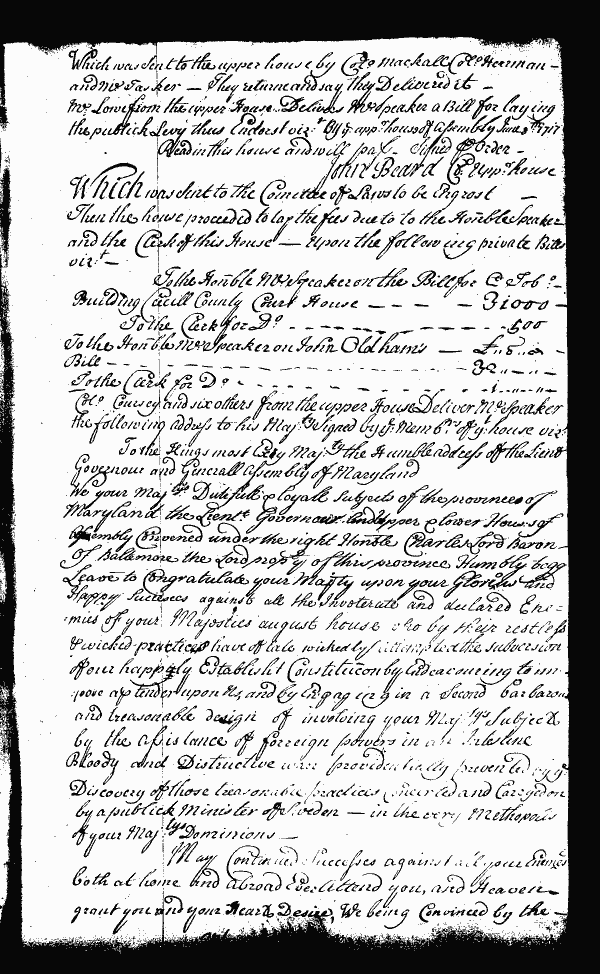 Which was Sent to the upper house by Coll. Mackall Coll. Herman
and Mr Tasker — They return and say they Delivered it —
Mr Lowe from the upper House Delivers Mr Speaker a Bill for laying
the publick Levy thus Endorst vizt. By ye uppr. house of assembly June 8th 1717
Read in this house and will pass — Signed p Order —
John Beard Cl. Uppr. house
Which was Sent to the Comittee of Laws to be Ingrost —
Then the house proceeded to lay the fees due to the Honble Speaker
and the Clerk of this House — upon the following private Bills
vizt. —
To the Honble Mr Speaker on the Bill for Tobo. —
Building Cecill County Court House — — — — 3:1000 —
To the Clerk for Do. — — — — — 500
To the Honble Mr Speaker on John Oldham's —
Bill — — — — — 3
To the Clerk for Do. — — — —
Coll. Coursey and six others from the upper House Deliver Mr Speaker
the following address to his Majty. Signed by ye Membrs. of ye house vizt.
To the Kings most Majty. the Humble address of the Lieut.
Governour and Generall Assembly of Maryland
We your Majtys. Dutifull & loyall Subjects of the province of
Maryland the Lieut. Governour and upper & lower Houses of
Assembly Convened under the right Honble Charles Lord Baron
of Baltemore the Lord propry. of this province Humbly begg
Leave to Congratulate your Majty upon your Glorious and
Happy Successes against all the Inveterate and declared Ene=
mies of your Majesties august house who by their restless
& wicked practices have of late wickedly attempted the subversion
of our happily Establisht Constitution by Endeavouring to im=
pose a pretender upon us, and by Engaging in a Second barbarous
and treasonable design of involving your Majtys. Subjects
by the assistance of forreign powers in an Intestine
Bloody and Distructive warr providentially prevented by ye
Discovery of those treasonable practices Abetted and Carryed on
by a publick Minister of Sweden — in the very Methopolis
of your Majtys Dominions —
May Continued Successes against all your Enemies
both at home and abroad Ever attend you, and Heaven
grant you and your Hearts Desire, We being Convinced by the —